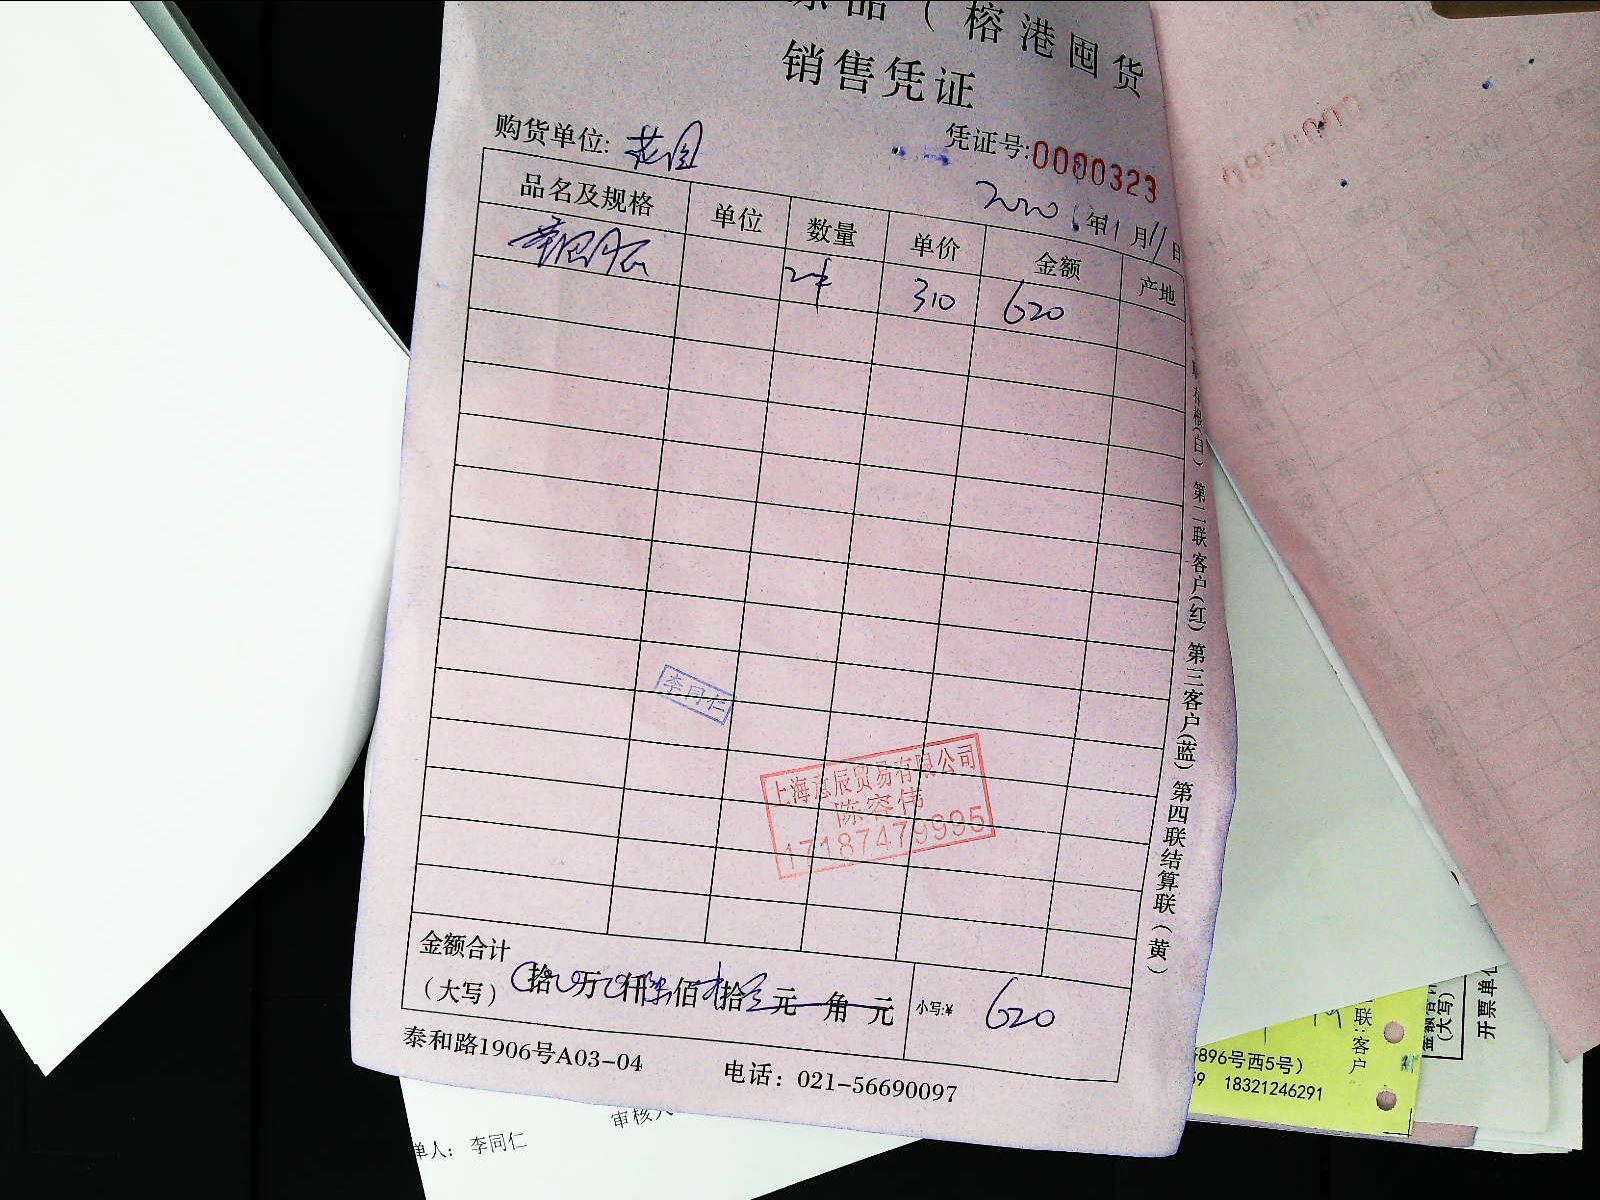 品（榕港囤货
销售凭证
购货单位: 花园
凭证号:0000323
2020年1月11日
品名及规格 单位 数量 单价 金额 产地
2件 310 620
存根(白) 第二联客户(红) 第三客户(蓝) 第四联结算联(黄)
李同仁
上海意辰贸易有限公司
陈容伟
17187479995
金额合计
(大写) 拾 万 仟陆佰贰拾 元 角 元 小写:¥ 620
泰和路1906号A03-04 电话：021-56690097
单人： 李同仁 审核人
联:客户
896号西5号）
18321246291
(大写)
开票单位